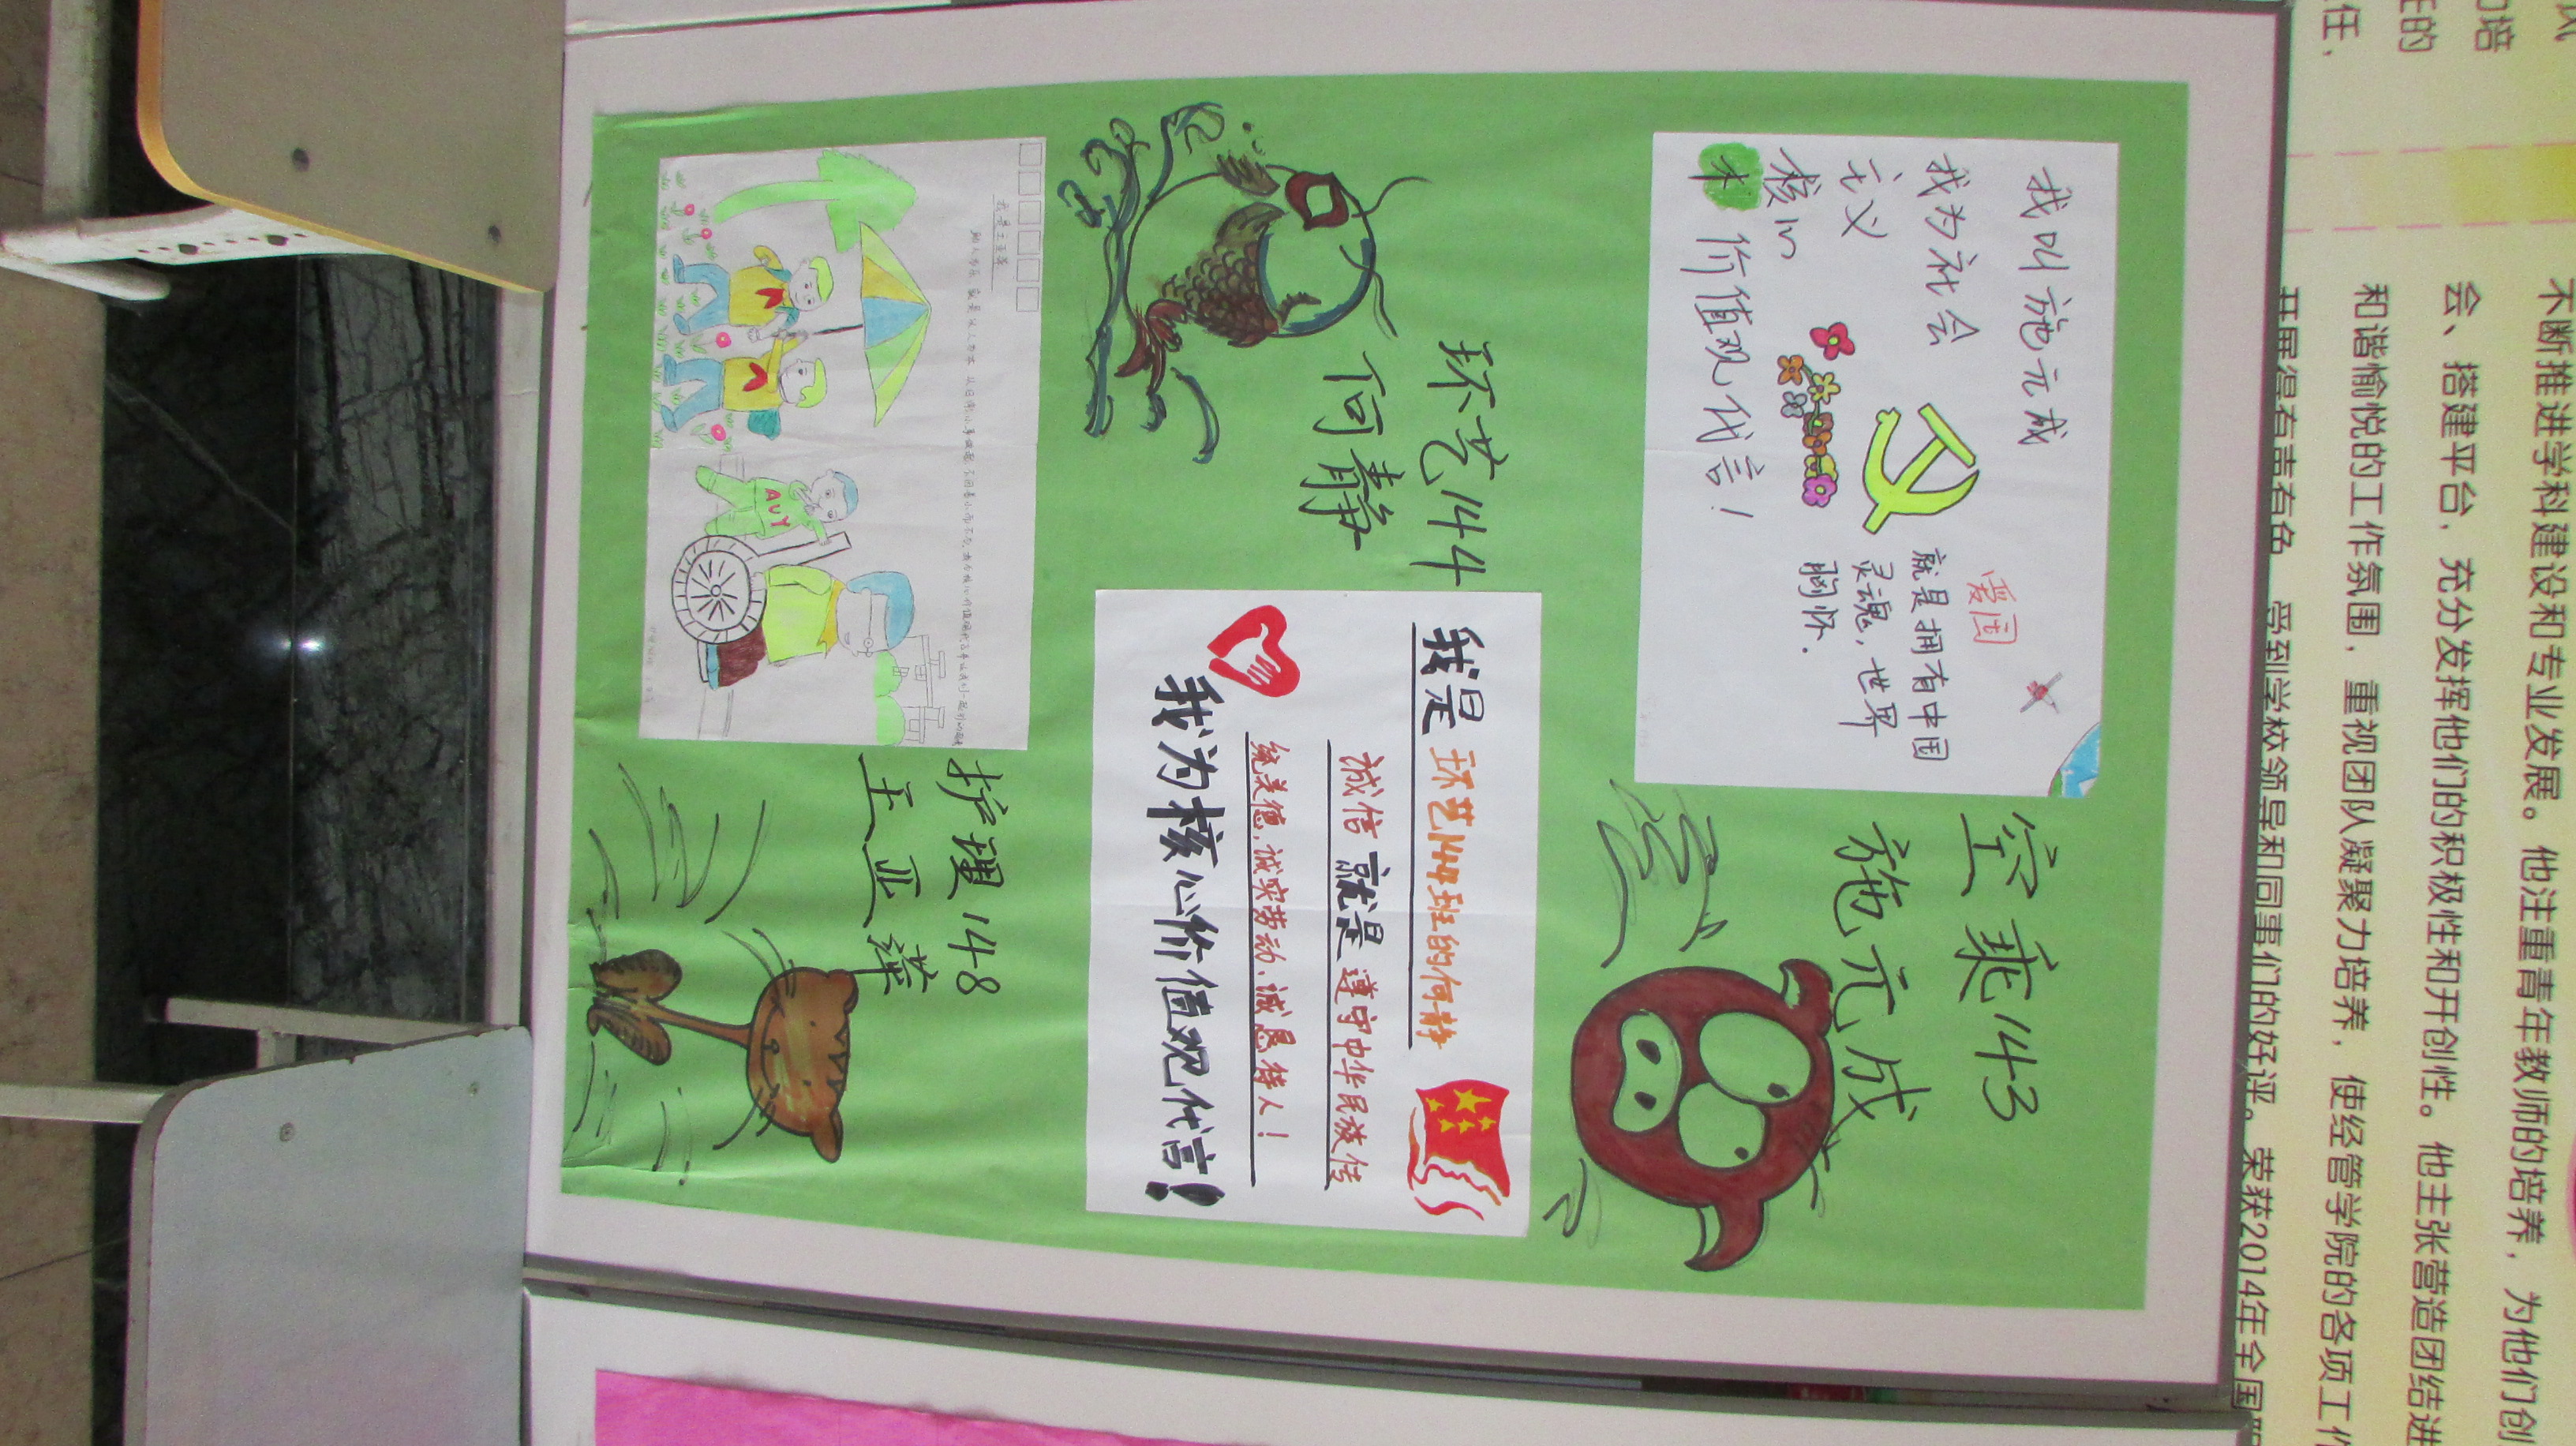 我叫施元成
我为社会
主义
核心
价值观代言！
爱国
就是拥有中国
灵魂，世界
胸怀.
空乘143
施元成
环艺144
何静
我是 环艺144班的何静
诚信 就是 遵守中华民族传
统美德，诚实劳动、诚恳待人！
我为核心价值观代言！
AUY
护理148
王亚萍
任，
会、搭建平台，充分发挥他们的积极性和开创性。他主张营造团结进
不断推进学科建设和专业发展。他注重青年教师的培养，为他们创
和谐愉悦的工作氛围，重视团队凝聚力培养，使经管学院的各项工作
开展得有声有色，受到学校领导和同事们的好评。荣获2014年全国